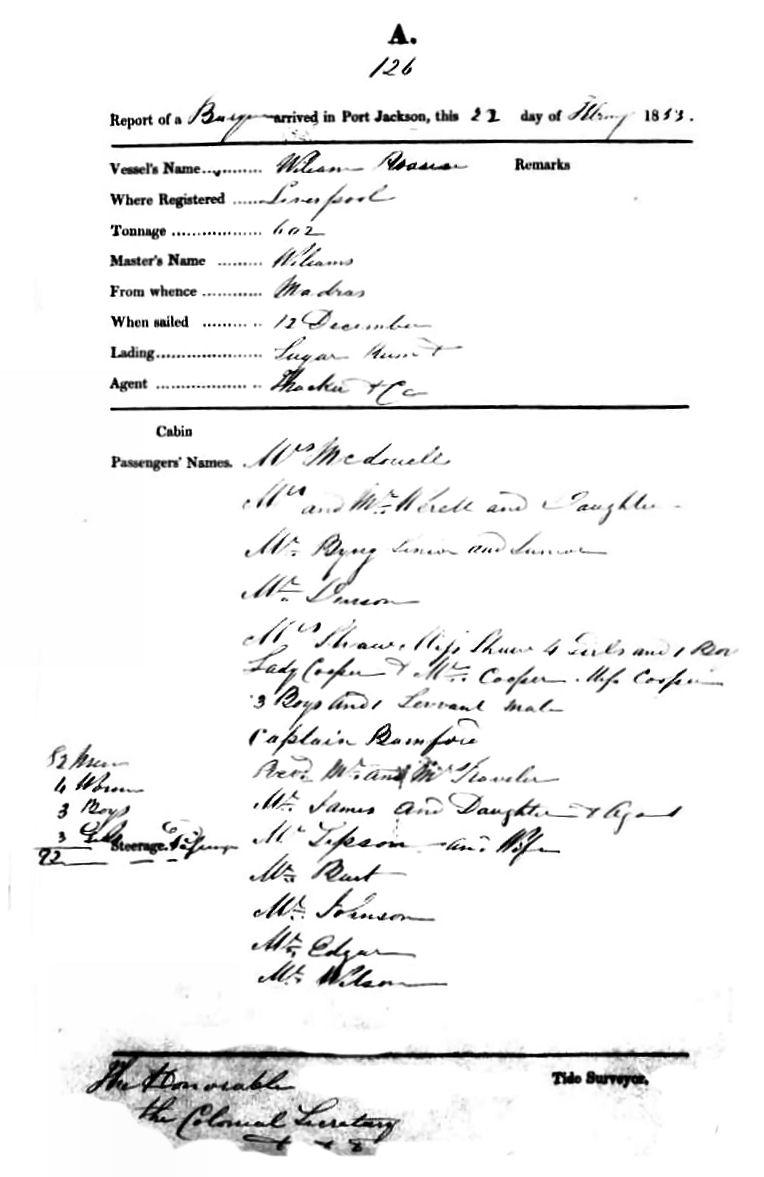 A.
126
Report of a Barque arrived in Port Jackson, this 22 day of Febrany 1853.
Vessel's Name........... William Remarks
Where Registered ...... Liverpool
Tonnage .................. 602
Master's Name ......... Williams
From whence ............ Madras
When sailed ......... .. 12 December
Lading.................. Sugar Rum &
Agent .................. .. Thacker & Co
Cabin
Passengers' Names. Mrs Mcdouell
Mrs and Mr and Daughter
Mr. Byng Senior and Junior
Mr.
Mrs Shaw, Miss Shaw 4 Girls and 1 Boy
Lady Cooper & Mr. Cooper Miss Cooper
3 Boys and 1 Servant male
Captain Bamford
52 Men
Revd. Mr. and Mrs Traveler
4 Women
3 Boys
Mr. James and Daughter &
3 Girls
Steerage. Passengers Mr and Wife
Mr. Burt
Mr. Johnson
Mr. Edgar
Mr. Wilson
Tide Surveyor.
The Honorable
the Colonial Secretary